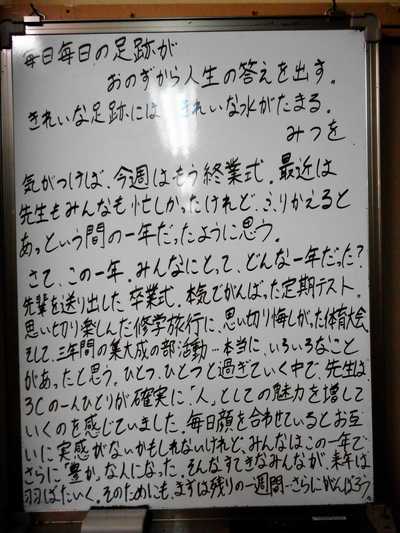 毎日毎日の足跡が
おのずから人生の答えを出す。
きれいな足跡には きれいな水がたまる。
みつを
気がつけば、今週はもう終業式。最近は
先生もみんなも忙しかったけれど、ふりかえると
あっという間の一年だったように思う。
さて、この一年、みんなにとって、どんな一年だった？
先輩を送り出した卒業式。本気でがんばった定期テスト。
思い切り楽しんだ修学旅行に、思い切り悔しがった体育大会
そして、三年間の集大成の部活動…本当に、いろいろなこと
があったと思う。ひとつ、ひとつと過ぎていく中で、先生は、
3Cの一人ひとりが確実に「人」としての魅力を増して
いくのを感じていました。毎日顔を合わせているとお互
いに実感がないかもしれないけれど、みんなはこの一年で、
さらに「豊か」な人になった。そんなすてきなみんなが、来年は
羽ばたいていく。そのためにも、まずは残りの一週間…さらにがんばろう